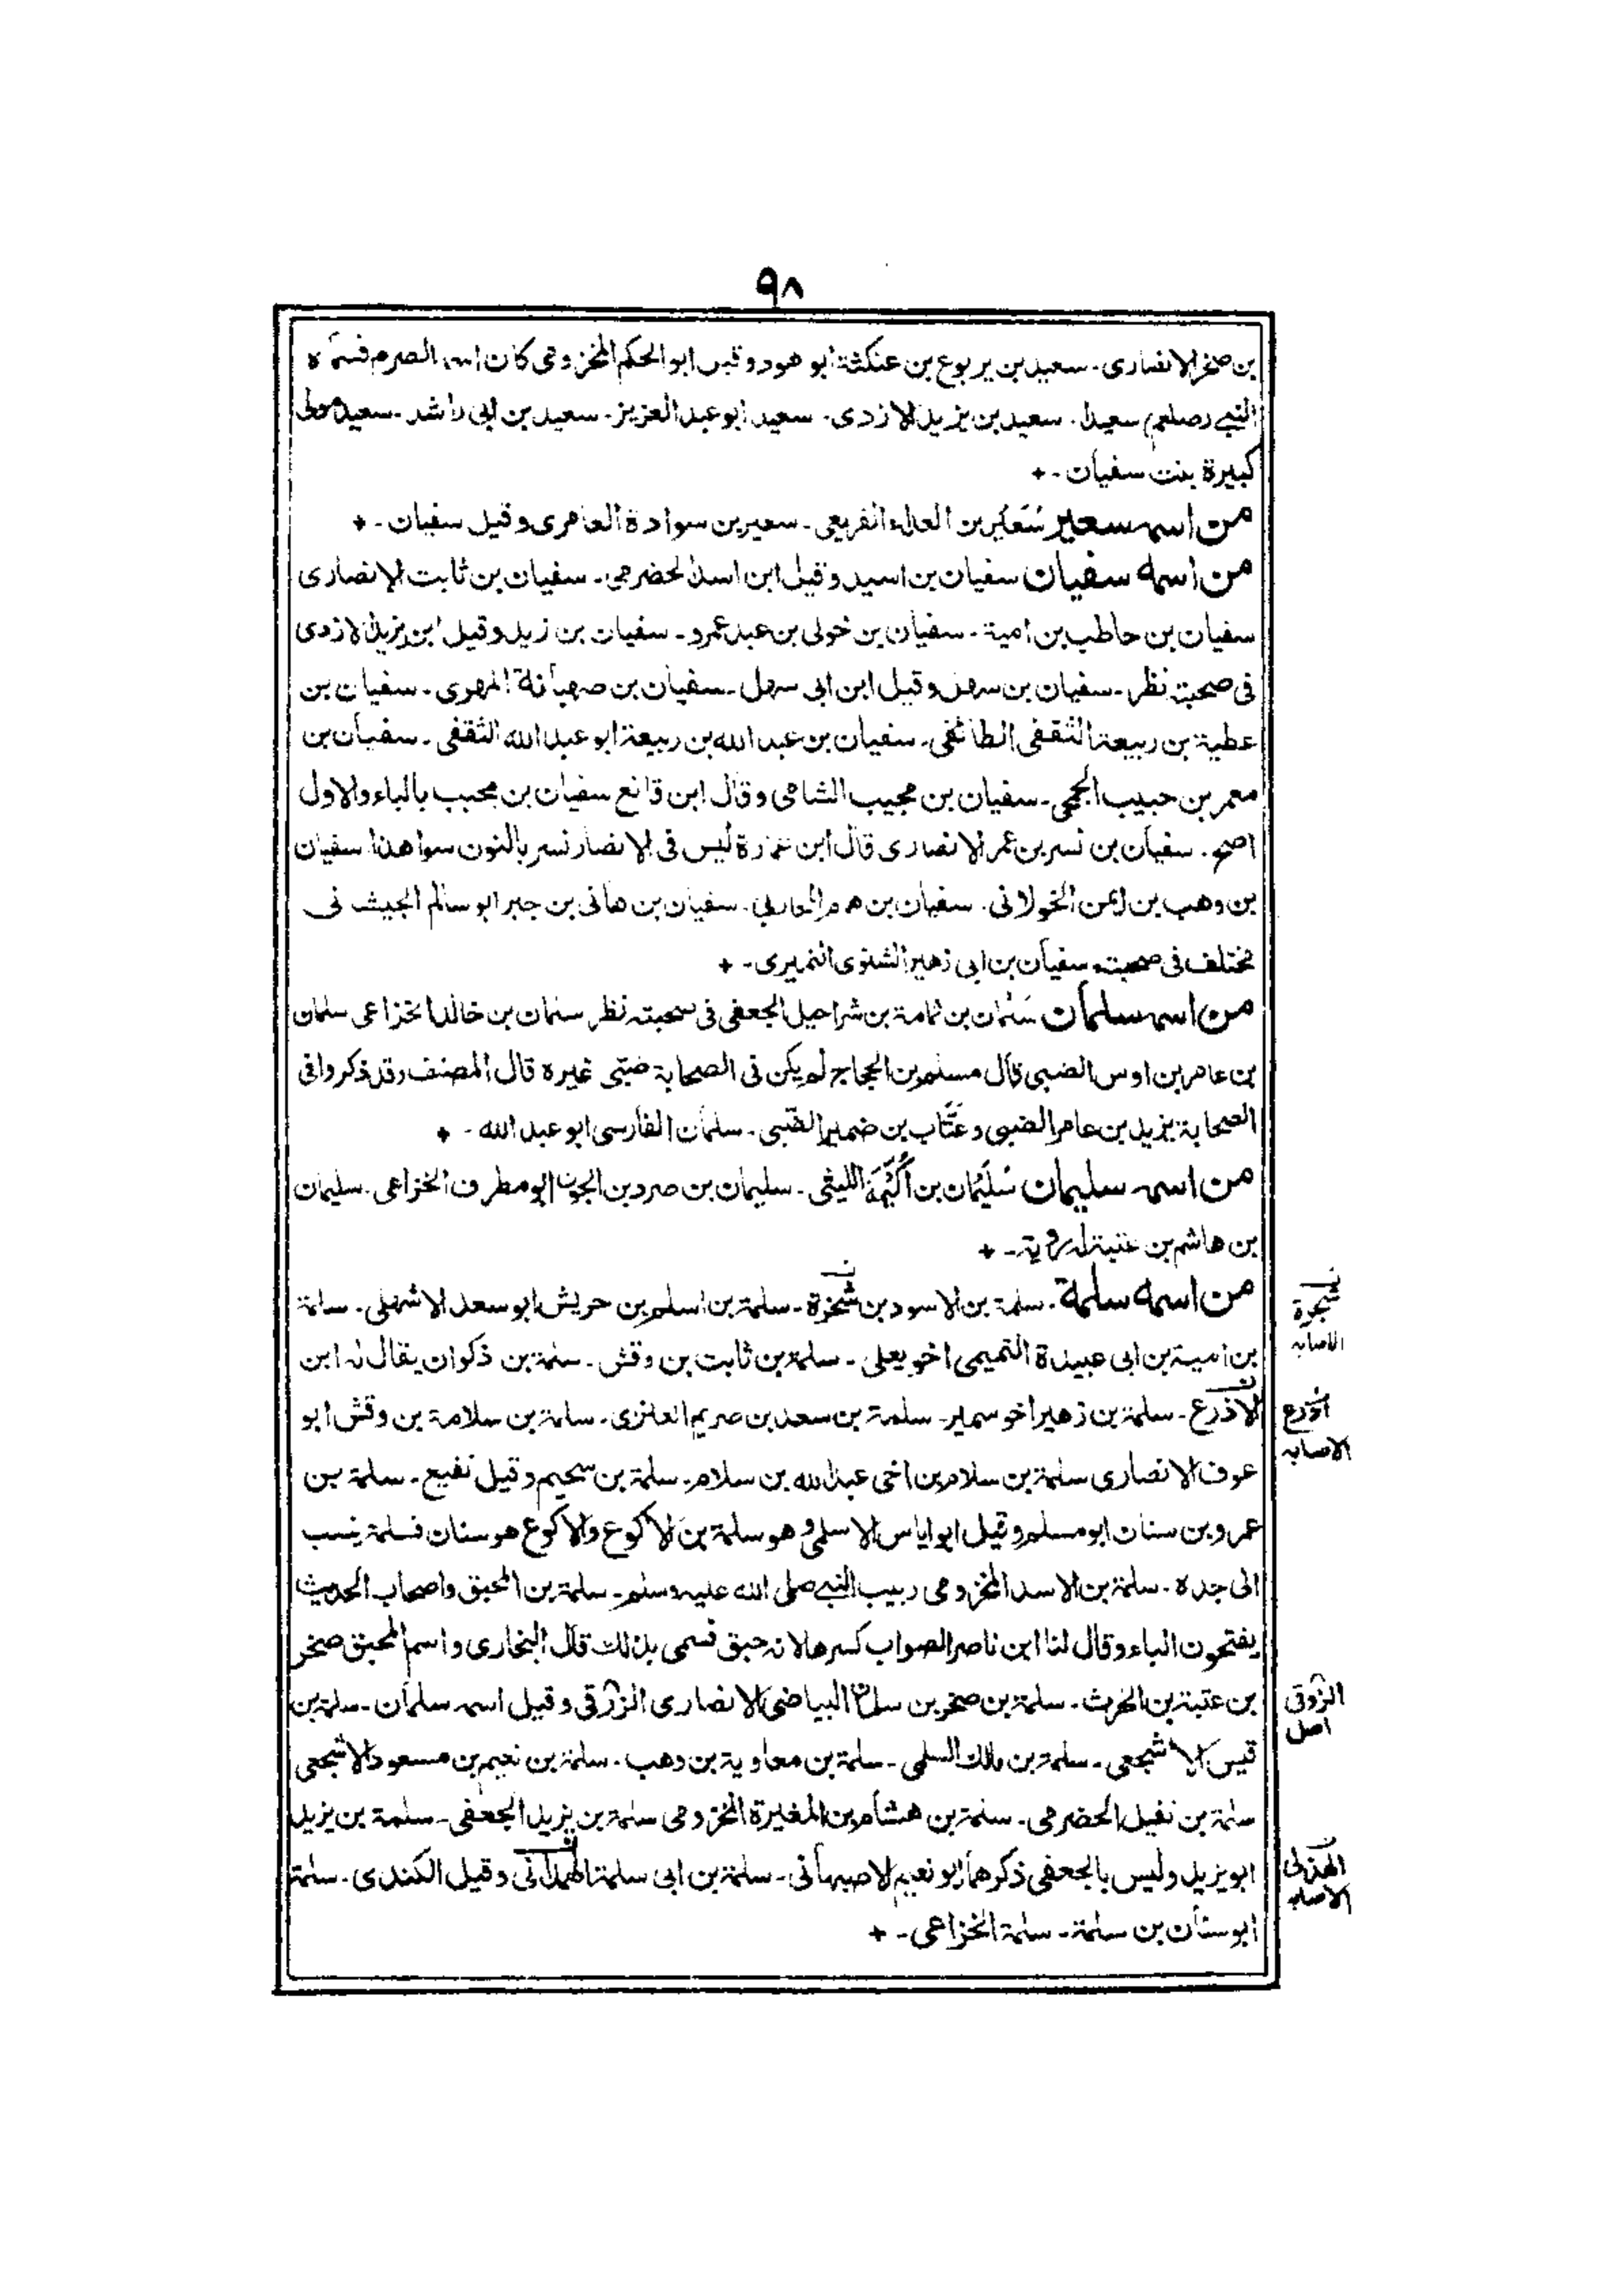 ٩٨
بن صخر الانصارى۔ سعيد بن يربوع بن عنكثة ابو هود وقيل ابو الحكم المخزومى كان اسمه الصرم فسماه
النبى (صلعم) سعيدا۔ سعيد بن يزيد الازدى۔ سعيد ابو عبد العزيز۔ سعيد بن ابى راشد۔ سعيد مولى
كبيرة بنت سفيان۔ +
من اسمه سعير سُعَير بن العداء الفريعى۔ سعير بن سوادة العامرى وقيل سفيان۔ +
من اسمه سفيان سفيان بن اسيد وقيل ابن اسد الحضرمى۔ سفيان بن ثابت الانصارى
سفيان بن حاطب بن امية۔ سفيان بن خولى بن عبد عمرو۔ سفيان بن زيد وقيل ابن يزيد الازدى
فى صحبته نظر۔ سفيان بن سهل وقيل ابن ابى سهل۔ سفيان بن صهبانة المهرى۔ سفيان بن
عطية بن ربيعة الثقفى الطائفى۔ سفيان بن عبد الله بن ربيعة ابو عبد الله الثقفى۔ سفيان بن
معمر بن حبيب الجمحى۔ سفيان بن مجيب الشامى وقال ابن قانع سفيان بن محبب بالباء والاول
اصح۔ سفيان بن نسر بن عمر الانصارى قال ابن عمارة ليس فى الانصار نسر بالنون سوا هذا سفيان
بن وهب بن ايمن الخولانى۔ سفيان بن همام المحاربى۔ سفيان بن هانى بن جبر ابو سالم الجيشانى
مختلف فى صحبته۔ سفيان بن ابى زهير الشنوى النميرى۔ +
من اسمه سلمان سَلْمان بن ثمامة بن شراحيل الجعفى فى صحبته نظر سلمان بن خالد الخزاعى سلمان
بن عامر بن اوس الضبى قال مسلم بن الحجاج لم يكن فى الصحابة ضبّى غيره قال المصنف وقد ذكروا فى
الصحابة يزيد بن عامر الضبى وعَتَّاب بن ضمير الضّبى۔ سلمان الفارسى ابو عبد الله۔ +
من اسمه سليمان سُلَيْمان بن اُكَيْمَة الليثى۔ سليمان بن صرد بن الجون ابو مطرف الخزاعى۔ سليمان
بن هاشم بن عتبة له رؤية۔ +
من اسمه سلمة۔ سلمة بن الاسود بن شجرة۔ سلمة بن اسلم بن حريش ابو سعد الاشهلى۔ سلمة
بن امية بن ابى عبيدة التميمى اخو يعلى۔ سلمة بن ثابت بن وقش۔ سلمة بن ذكوان يقال له ابن
الاذرع۔ سلمة بن زهير اخو سمير۔ سلمة بن سعد بن صريم العنزى۔ سلمة بن سلامة بن وقش ابو
عوف الانصارى سلمة بن سلام بن اخى عبد الله بن سلام۔ سلمة بن سحيم وقيل نفيع۔ سلمة بن
عمرو بن سنان ابو مسلم وقيل ابو اياس الاسلمى وهو سلمة بن الاكوع والاكوع هو سنان فسلمة ينسب
الى جده۔ سلمة بن الاسد المخزومى ربيب النبى صلى الله عليه وسلم۔ سلمة بن المحبق واصحاب الحديث
يفتحون الباء وقال لنا ابن ناصر الصواب كسرها لانه حبق فسمى بذلك قال البخارى واسم المحبق صخر
بن عتبة بن الحرث۔ سلمة بن صخر بن سلمان البياضى الانصارى الزرقى وقيل اسمه سلمان۔ سلمة بن
قيس الاشجعى۔ سلمة بن مالك السلمى۔ سلمة بن معاوية بن وهب۔ سلمة بن نعيم بن مسعود الاشجعى
سلمة بن نفيل الحضرمى۔ سلمة بن هشام بن المغيرة المخزومى سلمة بن يزيد الجعفى۔ سلمة بن يزيد
ابو يزيد وليس بالجعفى ذكرهما ابو نعيم الاصبهانى۔ سلمة بن ابى سلمة الهمدانى وقيل الكندى۔ سلمة
ابو سنان بن سلمة۔ سلمة الخزاعى۔ +
شجرة
الاصابه
ادرع
الاصابه
الزوقى
اصل
الهذلى
الاصابه